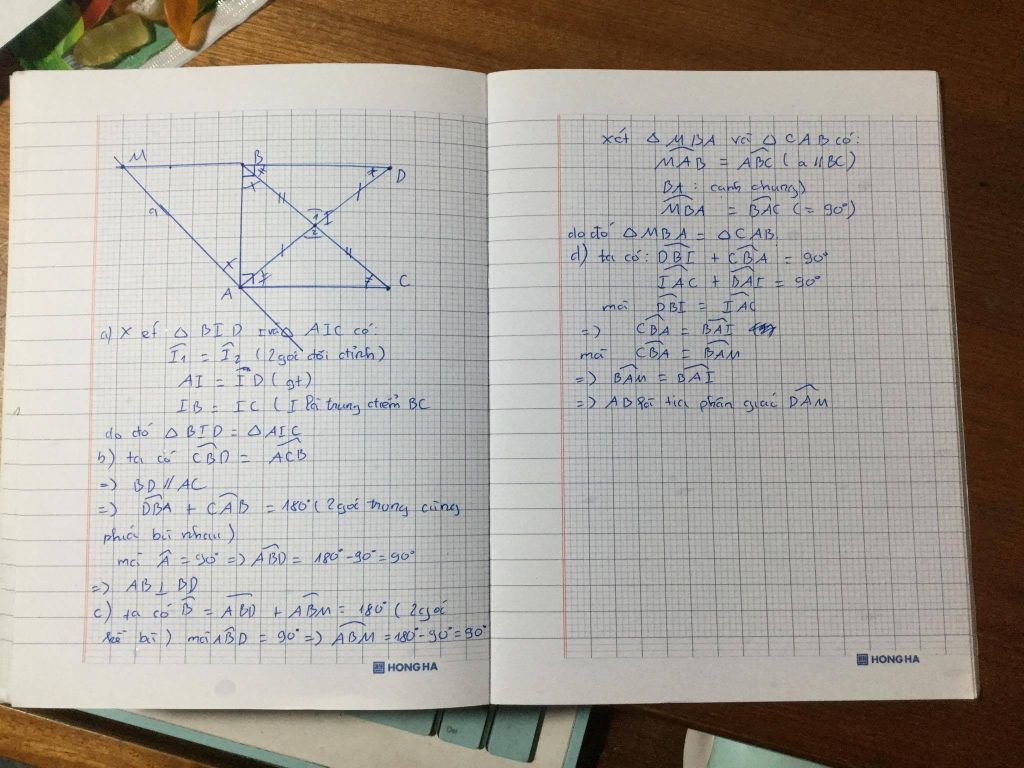 M
B
D
a
x
1
I
2
x
A
1
C
a) Xét: △ BID và △ AIC có:
Î1 = Î2 (2 góc đối đỉnh)
AI = ID (gt)
IB = IC (I là trung điểm BC
do đó △ BID = △ AIC
b) ta có CBD = ACB
=) BD // AC
=) DBA + CAB = 180° (2 góc trong cùng
phía bù nhau)
mà Â = 90° =) ABD = 180° - 90° = 90°
=) AB ⊥ BD
c) ta có B̂ = ABD + ABM = 180° (2 góc
kề bù) mà ABD = 90° =) ABM = 180° - 90° = 90°
HONG HA
xét △ MBA và △ CAB có:
MAB = ABC (a // BC)
BA : cạnh chung)
MBA = BAC (= 90°)
do đó △ MBA = △ CAB.
d) ta có: DBI + CBA = 90°
IAC + DAI = 90°
mà DBI = IAC
=) CBA = BAI
mà CBA = BAM
=) BAM = BAI
=) AB là tia phân giác DAM
HONG HA